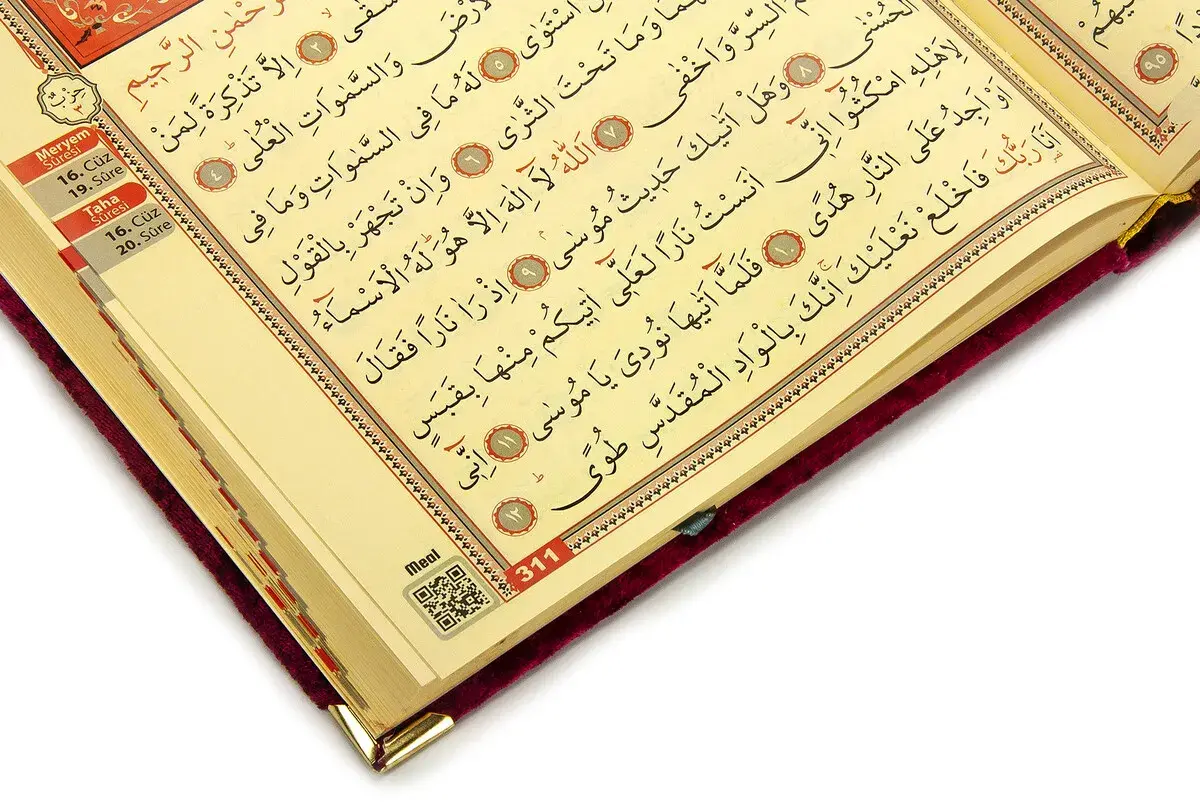 الرَّحِيمِ
٢ اِلَّا تَذْكِرَةً لِمَنْ
الْاَرْضَ وَالسَّمٰوَاتِ الْعُلٰى ٤
اسْتَوٰى ٥ لَهُ مَا فِى السَّمٰوَاتِ وَمَا فِى
وَمَا تَحْتَ الثَّرٰى ٦ وَاِنْ تَجْهَرْ بِالْقَوْلِ
السِّرَّ وَاَخْفٰى ٧ اَللّٰهُ لَٓا اِلٰهَ اِلَّا هُوَ لَهُ الْاَسْمَٓاءُ
الْحُسْنٰى ٨ وَهَلْ اَتٰيكَ حَدِيثُ مُوسٰى ٩ اِذْ رَاٰ نَارًا فَقَالَ
لِاَهْلِهِ امْكُثُٓوا اِنِّٓى اٰنَسْتُ نَارًا لَعَلِّٓى اٰتِيكُمْ مِنْهَا بِقَبَسٍ
اَوْ اَجِدُ عَلَى النَّارِ هُدًى ١٠ فَلَمَّٓا اَتٰيهَا نُودِىَ يَا مُوسٰى ١١ اِنِّٓى
اَنَا رَبُّكَ فَاخْلَعْ نَعْلَيْكَ اِنَّكَ بِالْوَادِ الْمُقَدَّسِ طُوًى ١٢
حزب
٣
Meryem
Sûresi
16. Cüz
19. Sûre
Taha
Sûresi
16. Cüz
20. Sûre
Meal
311
٩٥